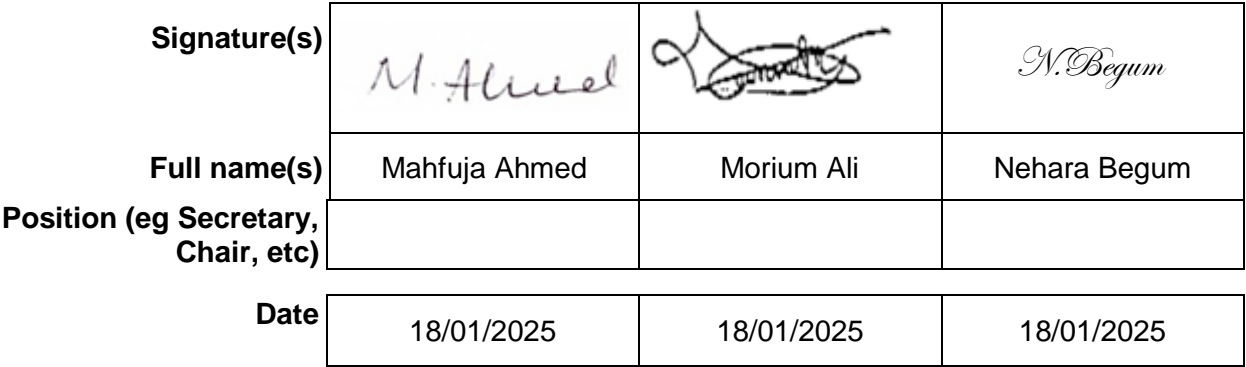 Signature(s)
M. Ahmed
N. Begum
Full name(s) Mahfuja Ahmed Morium Ali Nehara Begum
Position (eg Secretary,
Chair, etc)
Date 18/01/2025 18/01/2025 18/01/2025